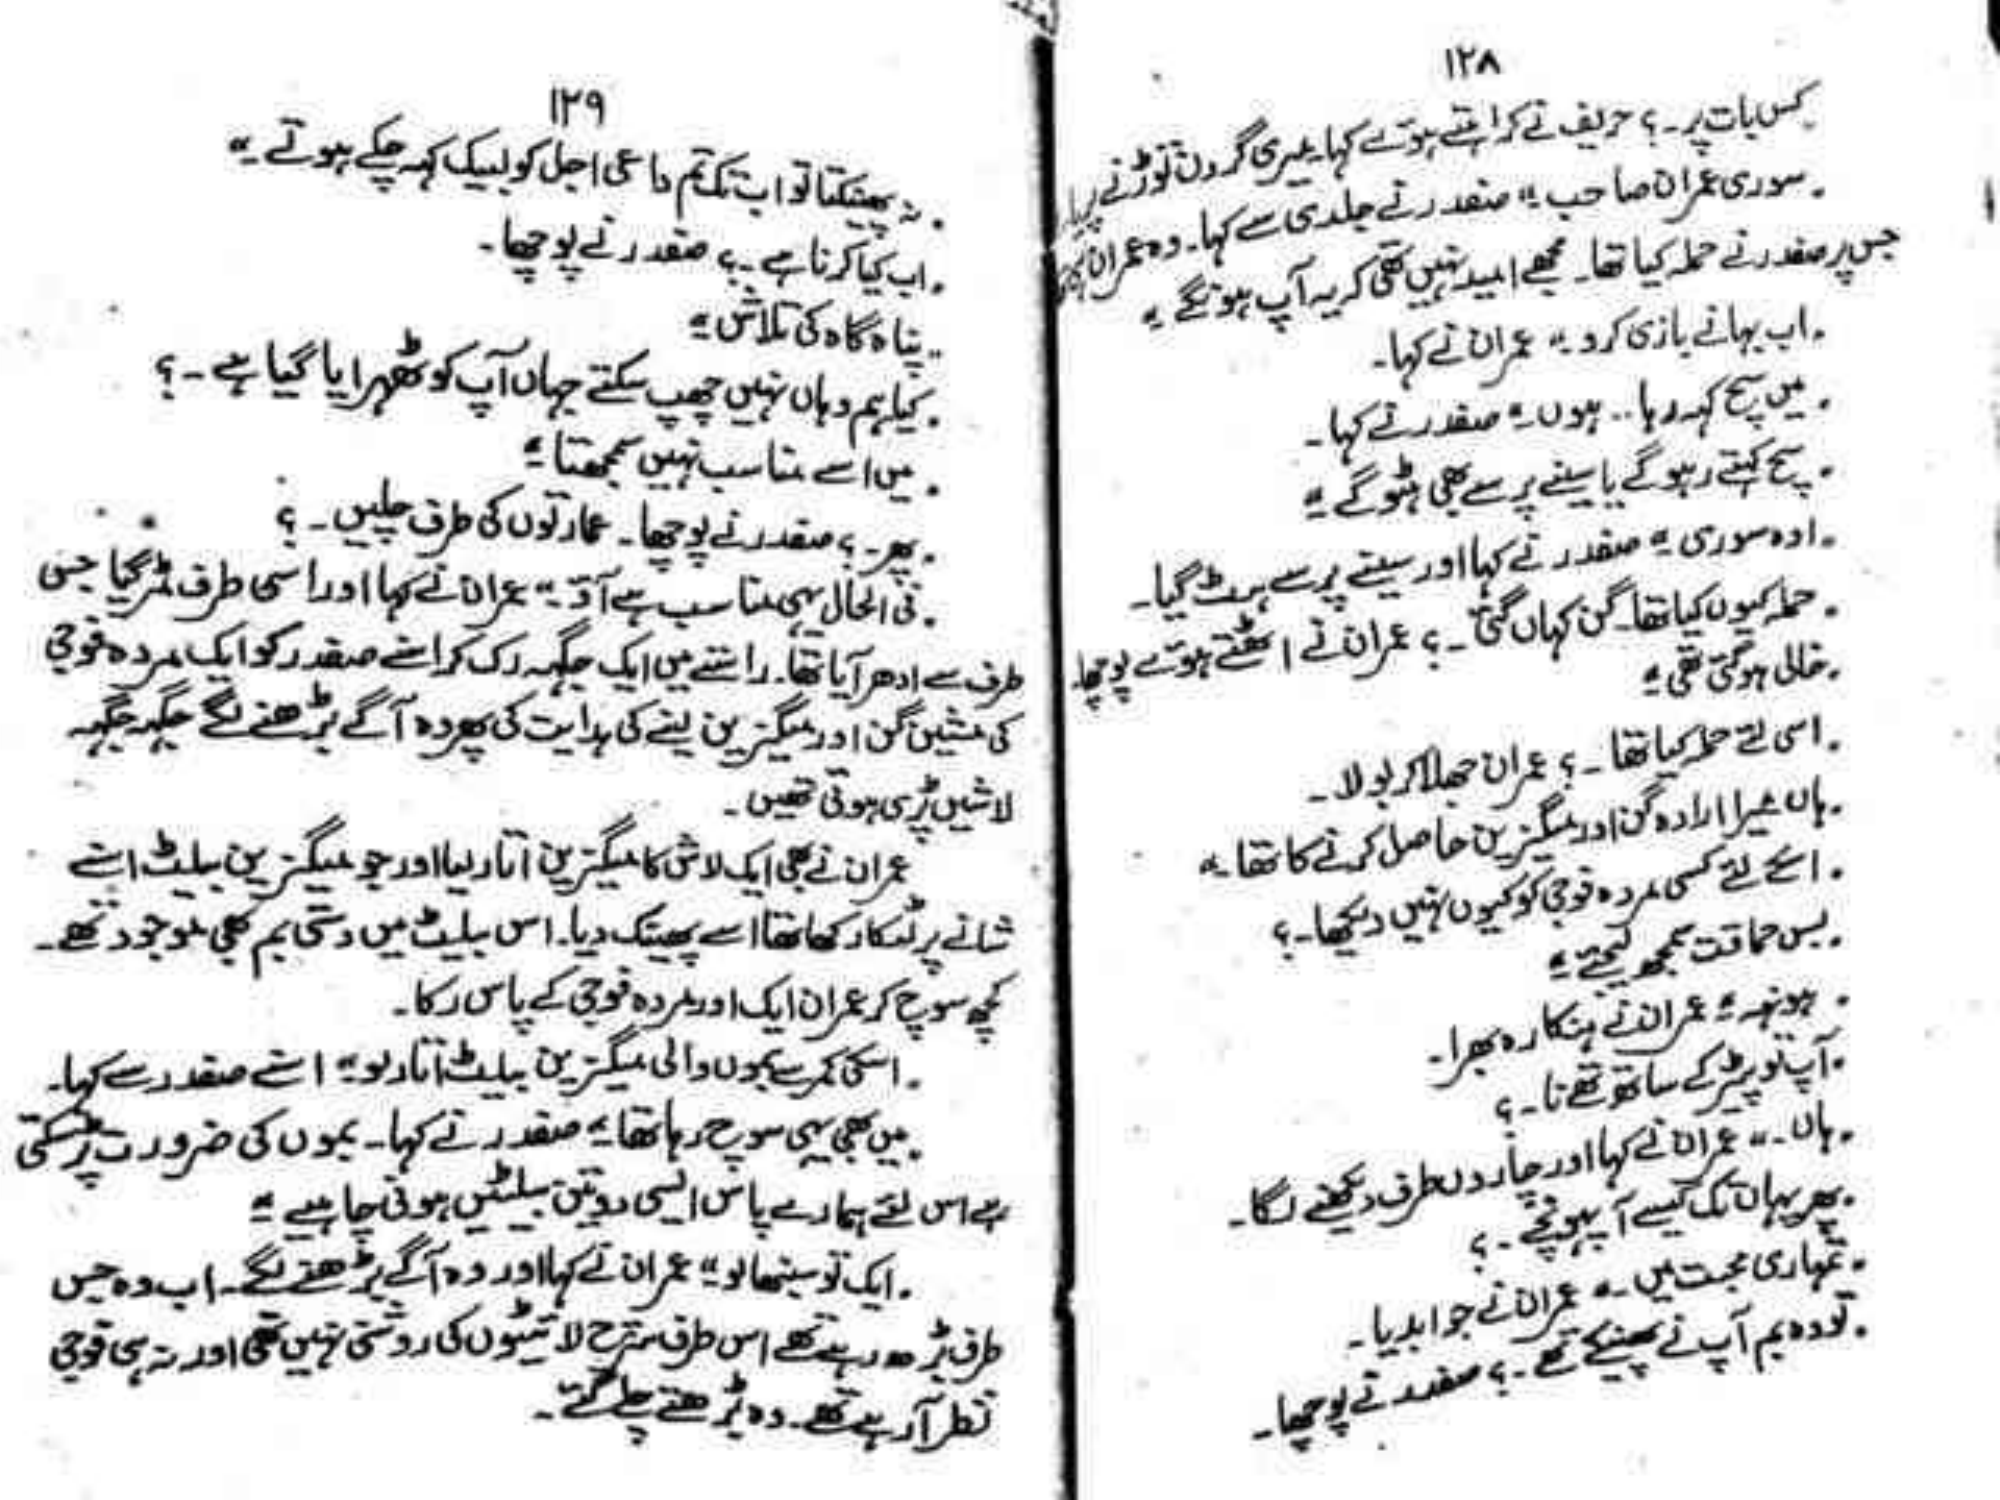 ۱۲۸
کس بات پر۔؟ حریف نے کراہتے ہوئے کہا۔ میری گردن توڑنے پر یا
۔ سوری عمران صاحب ۔" صفدر نے جلدی سے کہا۔ وہ عمران ہی تھا
جس پر صفدر نے حملہ کیا تھا۔ مجھے امید نہیں تھی کہ یہ آپ ہونگے ۔"
۔ اب بہانے بازی کرو ۔" عمران نے کہا۔
۔ میں سچ کہہ رہا .. ہوں ۔" صفدر نے کہا۔
۔ سچ کہتے رہو گے یا سینے پر سے بھی ہٹو گے ۔"
۔ اوہ سوری ۔" صفدر نے کہا اور سینے پر سے ہٹ گیا۔
۔ حملہ کیوں کیا تھا۔ گن کہاں گئی ۔؟ عمران نے اٹھتے ہوئے پوچھا
۔ خالی ہو گئی تھی ۔"
۔ اسی لئے حملہ کیا تھا ۔؟ عمران جھلا کر بولا ۔
۔ ہاں میرا ارادہ گن اور میگزین حاصل کرنے کا تھا ۔"
۔ اسکے لئے کسی مردہ فوجی کو کیوں نہیں دیکھا ۔؟
۔ بس حماقت سمجھ لیجئے ۔"
۔ ہونہہ ۔" عمران نے ہنکارہ بھرا۔
۔ آپ تو پیٹر کے ساتھ تھے نا ۔؟
۔ ہاں ۔" عمران نے کہا اور چاروں طرف دیکھنے لگا ۔
۔ پھر یہاں تک کیسے آ پہونچے ۔؟
۔ تمہاری محبت میں ۔" عمران نے جواب دیا ۔
۔ تو وہ بم آپ نے پھینکے تھے ۔؟ صفدر نے پوچھا۔
۱۲۹
۔ نہ پھینکتا تو اب تک تم داعی اجل کو لبیک کہہ چکے ہوتے ۔"
۔ اب کیا کرنا ہے ۔؟ صفدر نے پوچھا۔
۔ پناہ گاہ کی تلاش ۔"
۔ کیا ہم وہاں نہیں چھپ سکتے جہاں آپ کو ٹھہرایا گیا ہے ۔؟
۔ میں اسے مناسب نہیں سمجھتا ۔"
۔ پھر ۔؟ صفدر نے پوچھا۔ عمارتوں کی طرف چلیں ۔؟
۔ فی الحال یہی مناسب ہے آؤ ۔" عمران نے کہا اور اسی طرف مڑ گیا جس
طرف سے ادھر آیا تھا۔ راستے میں ایک جگہہ رک کر اسنے صفدر کو ایک مردہ فوجی
کی مشین گن اور میگزین لینے کی ہدایت کی پھر وہ آگے بڑھنے لگے جگہہ جگہہ
لاشیں پڑی ہوئی تھیں ۔
عمران نے بھی ایک لاش کا میگزین اتار لیا اور جو میگزین بیلٹ اسنے
شانے پر لٹکا رکھا تھا اسے پھینک دیا۔ اس بیلٹ میں دستی بم بھی موجود تھے ۔
کچھ سوچ کر عمران ایک اور مردہ فوجی کے پاس رکا۔
۔ اسکی کمر سے بموں والی میگزین بیلٹ اتار لو ۔" اسنے صفدر سے کہا۔
۔ میں بھی یہی سوچ رہا تھا ۔" صفدر نے کہا۔ بموں کی ضرورت پڑ سکتی
ہے اس لئے ہمارے پاس ایسی دو تین بیلٹیں ہونی چاہیے ۔"
۔ ایک تو سنبھالو ۔" عمران نے کہا اور وہ آگے بڑھنے لگے ۔ اب وہ جس
طرف بڑھ رہے تھے اس طرف سرچ لائیٹوں کی روشنی نہیں تھی اور نہ ہی فوجی
نظر آ رہے تھے ۔ وہ بڑھتے چلے گئے ۔